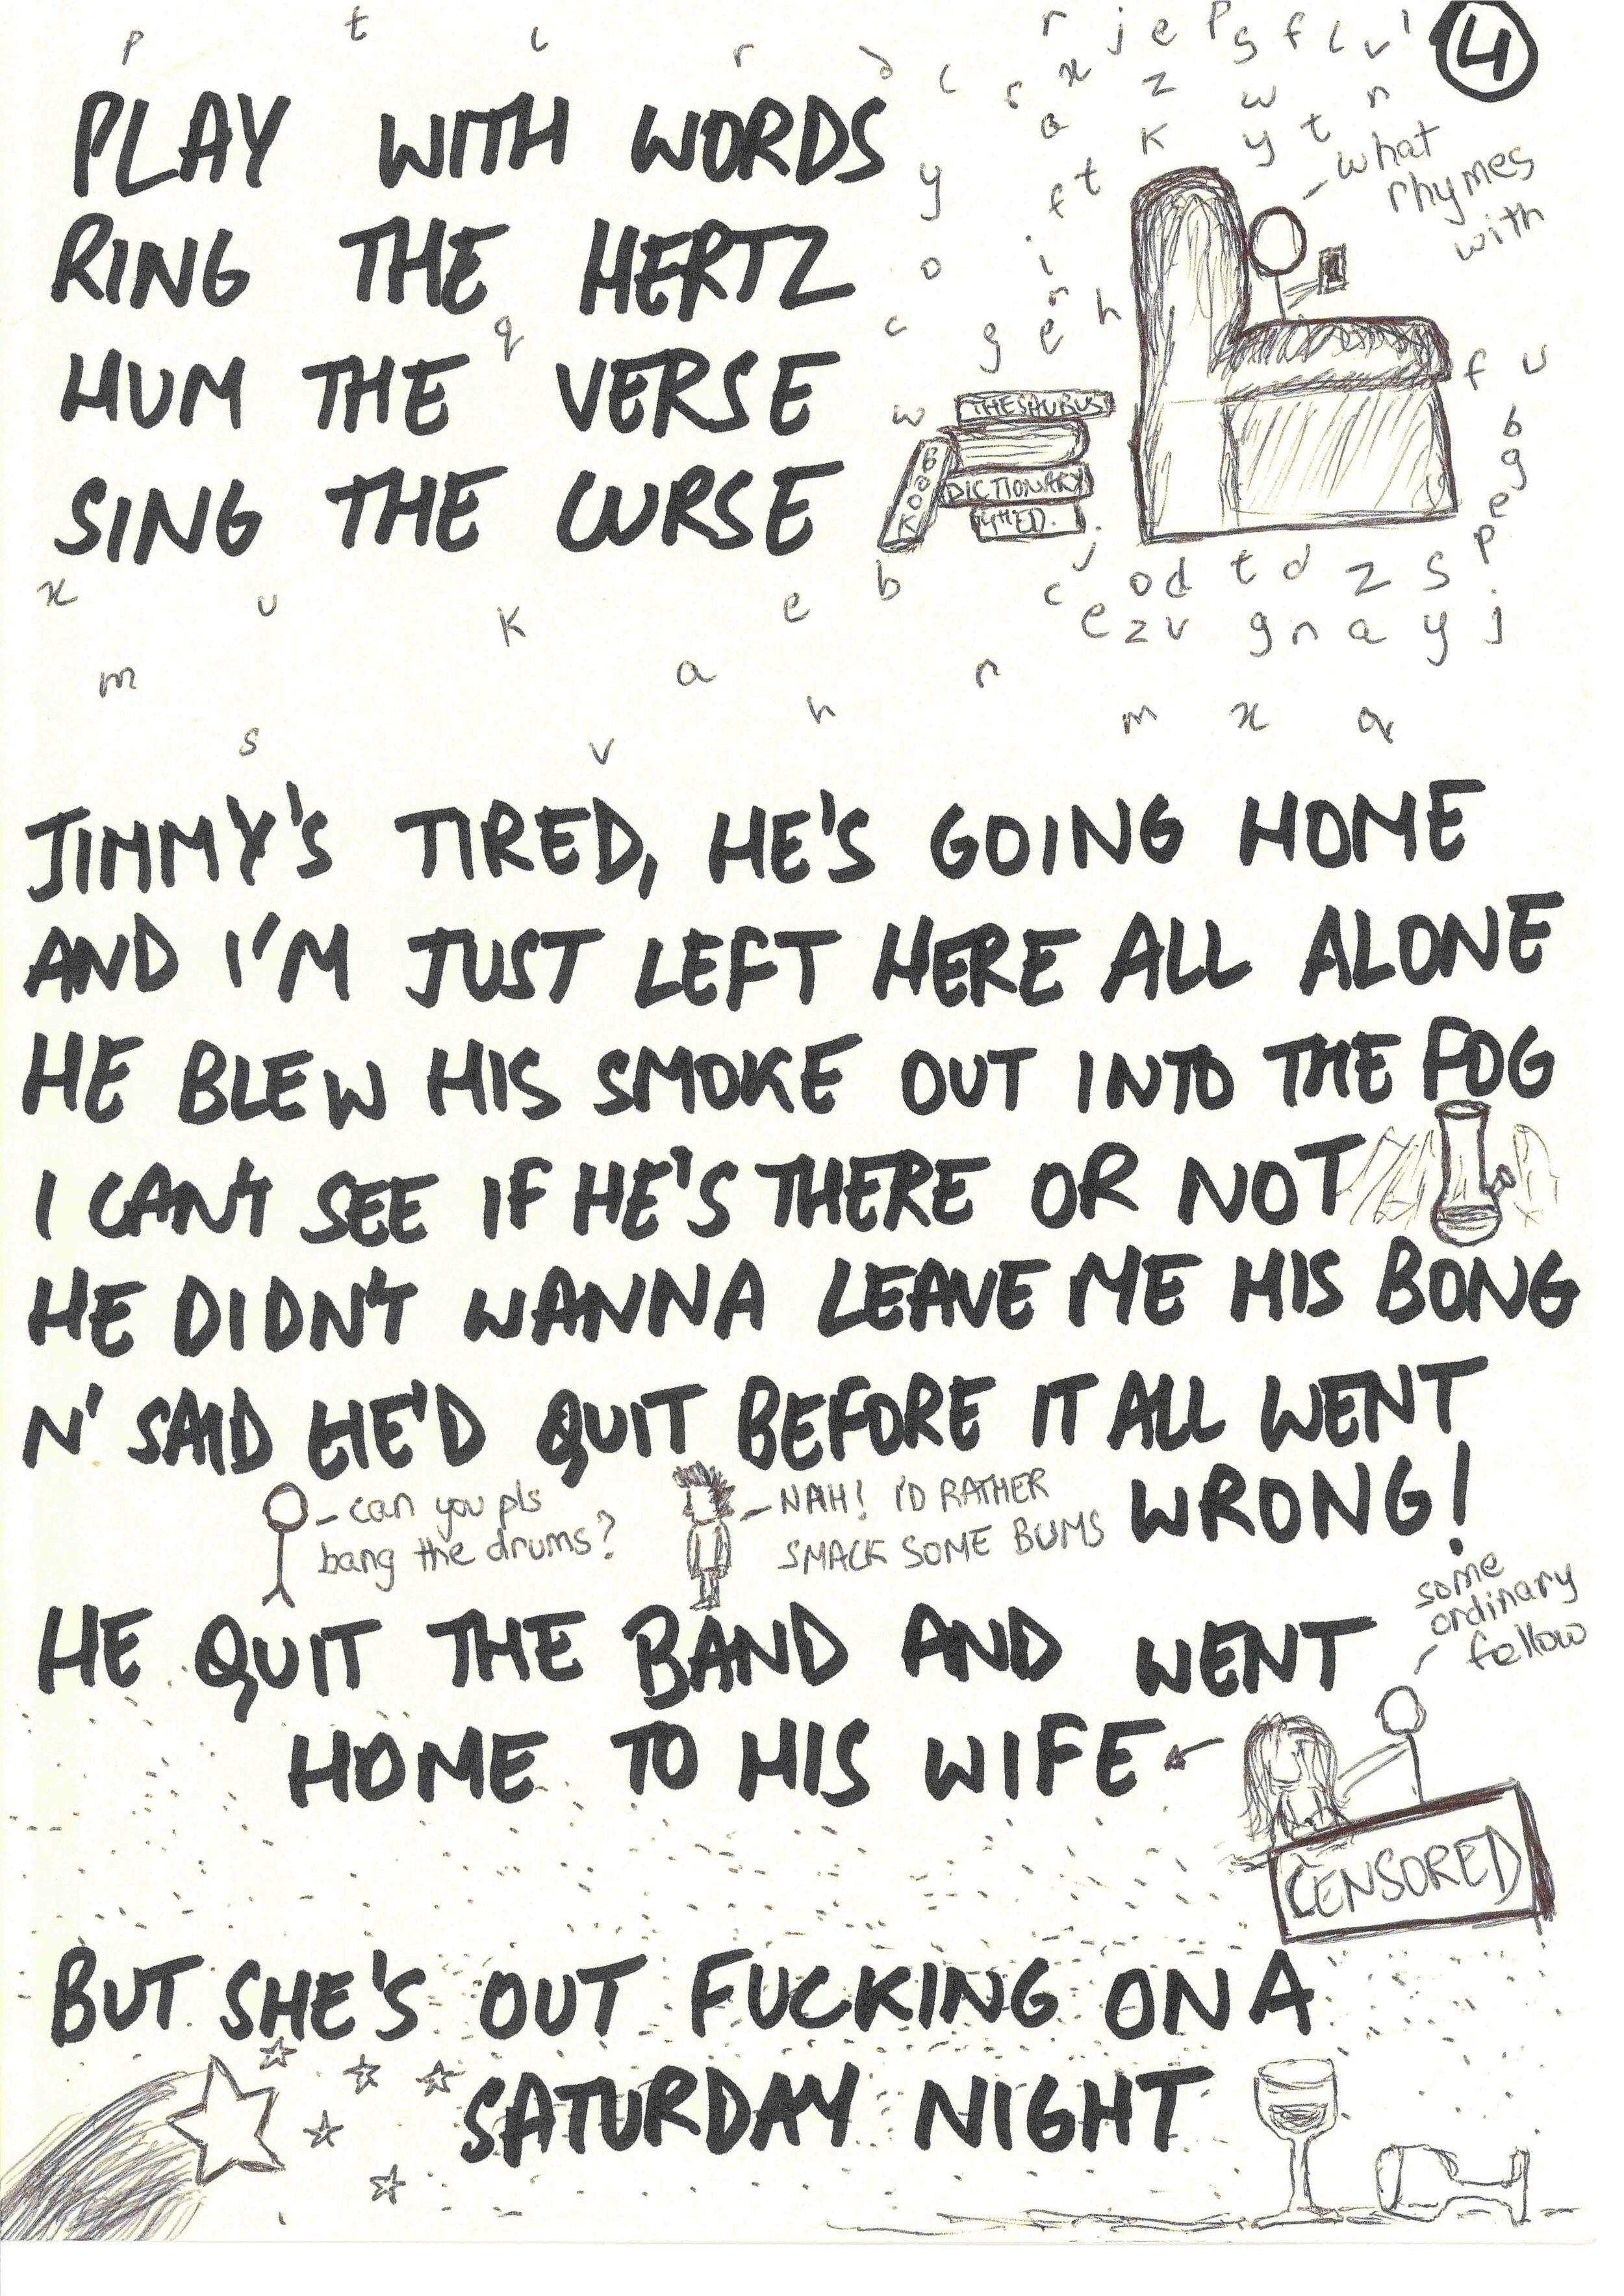 4
PLAY WITH WORDS
RING THE HERTZ
HUM THE VERSE
SING THE CURSE
what
rhymes
with
THESAURUS
BOOK
DICTIONARY
JIMMY'S TIRED, HE'S GOING HOME
AND I'M JUST LEFT HERE ALL ALONE
HE BLEW HIS SMOKE OUT INTO THE FOG
I CAN'T SEE IF HE'S THERE OR NOT
HE DIDN'T WANNA LEAVE ME HIS BONG
N' SAID HE'D QUIT BEFORE IT ALL WENT
WRONG!
can you pls
bang the drums?
NAH! I'D RATHER
SMACK SOME BUMS
HE QUIT THE BAND AND WENT
HOME TO HIS WIFE
some
ordinary
fellow
CENSORED
BUT SHE'S OUT FUCKING ON A
SATURDAY NIGHT